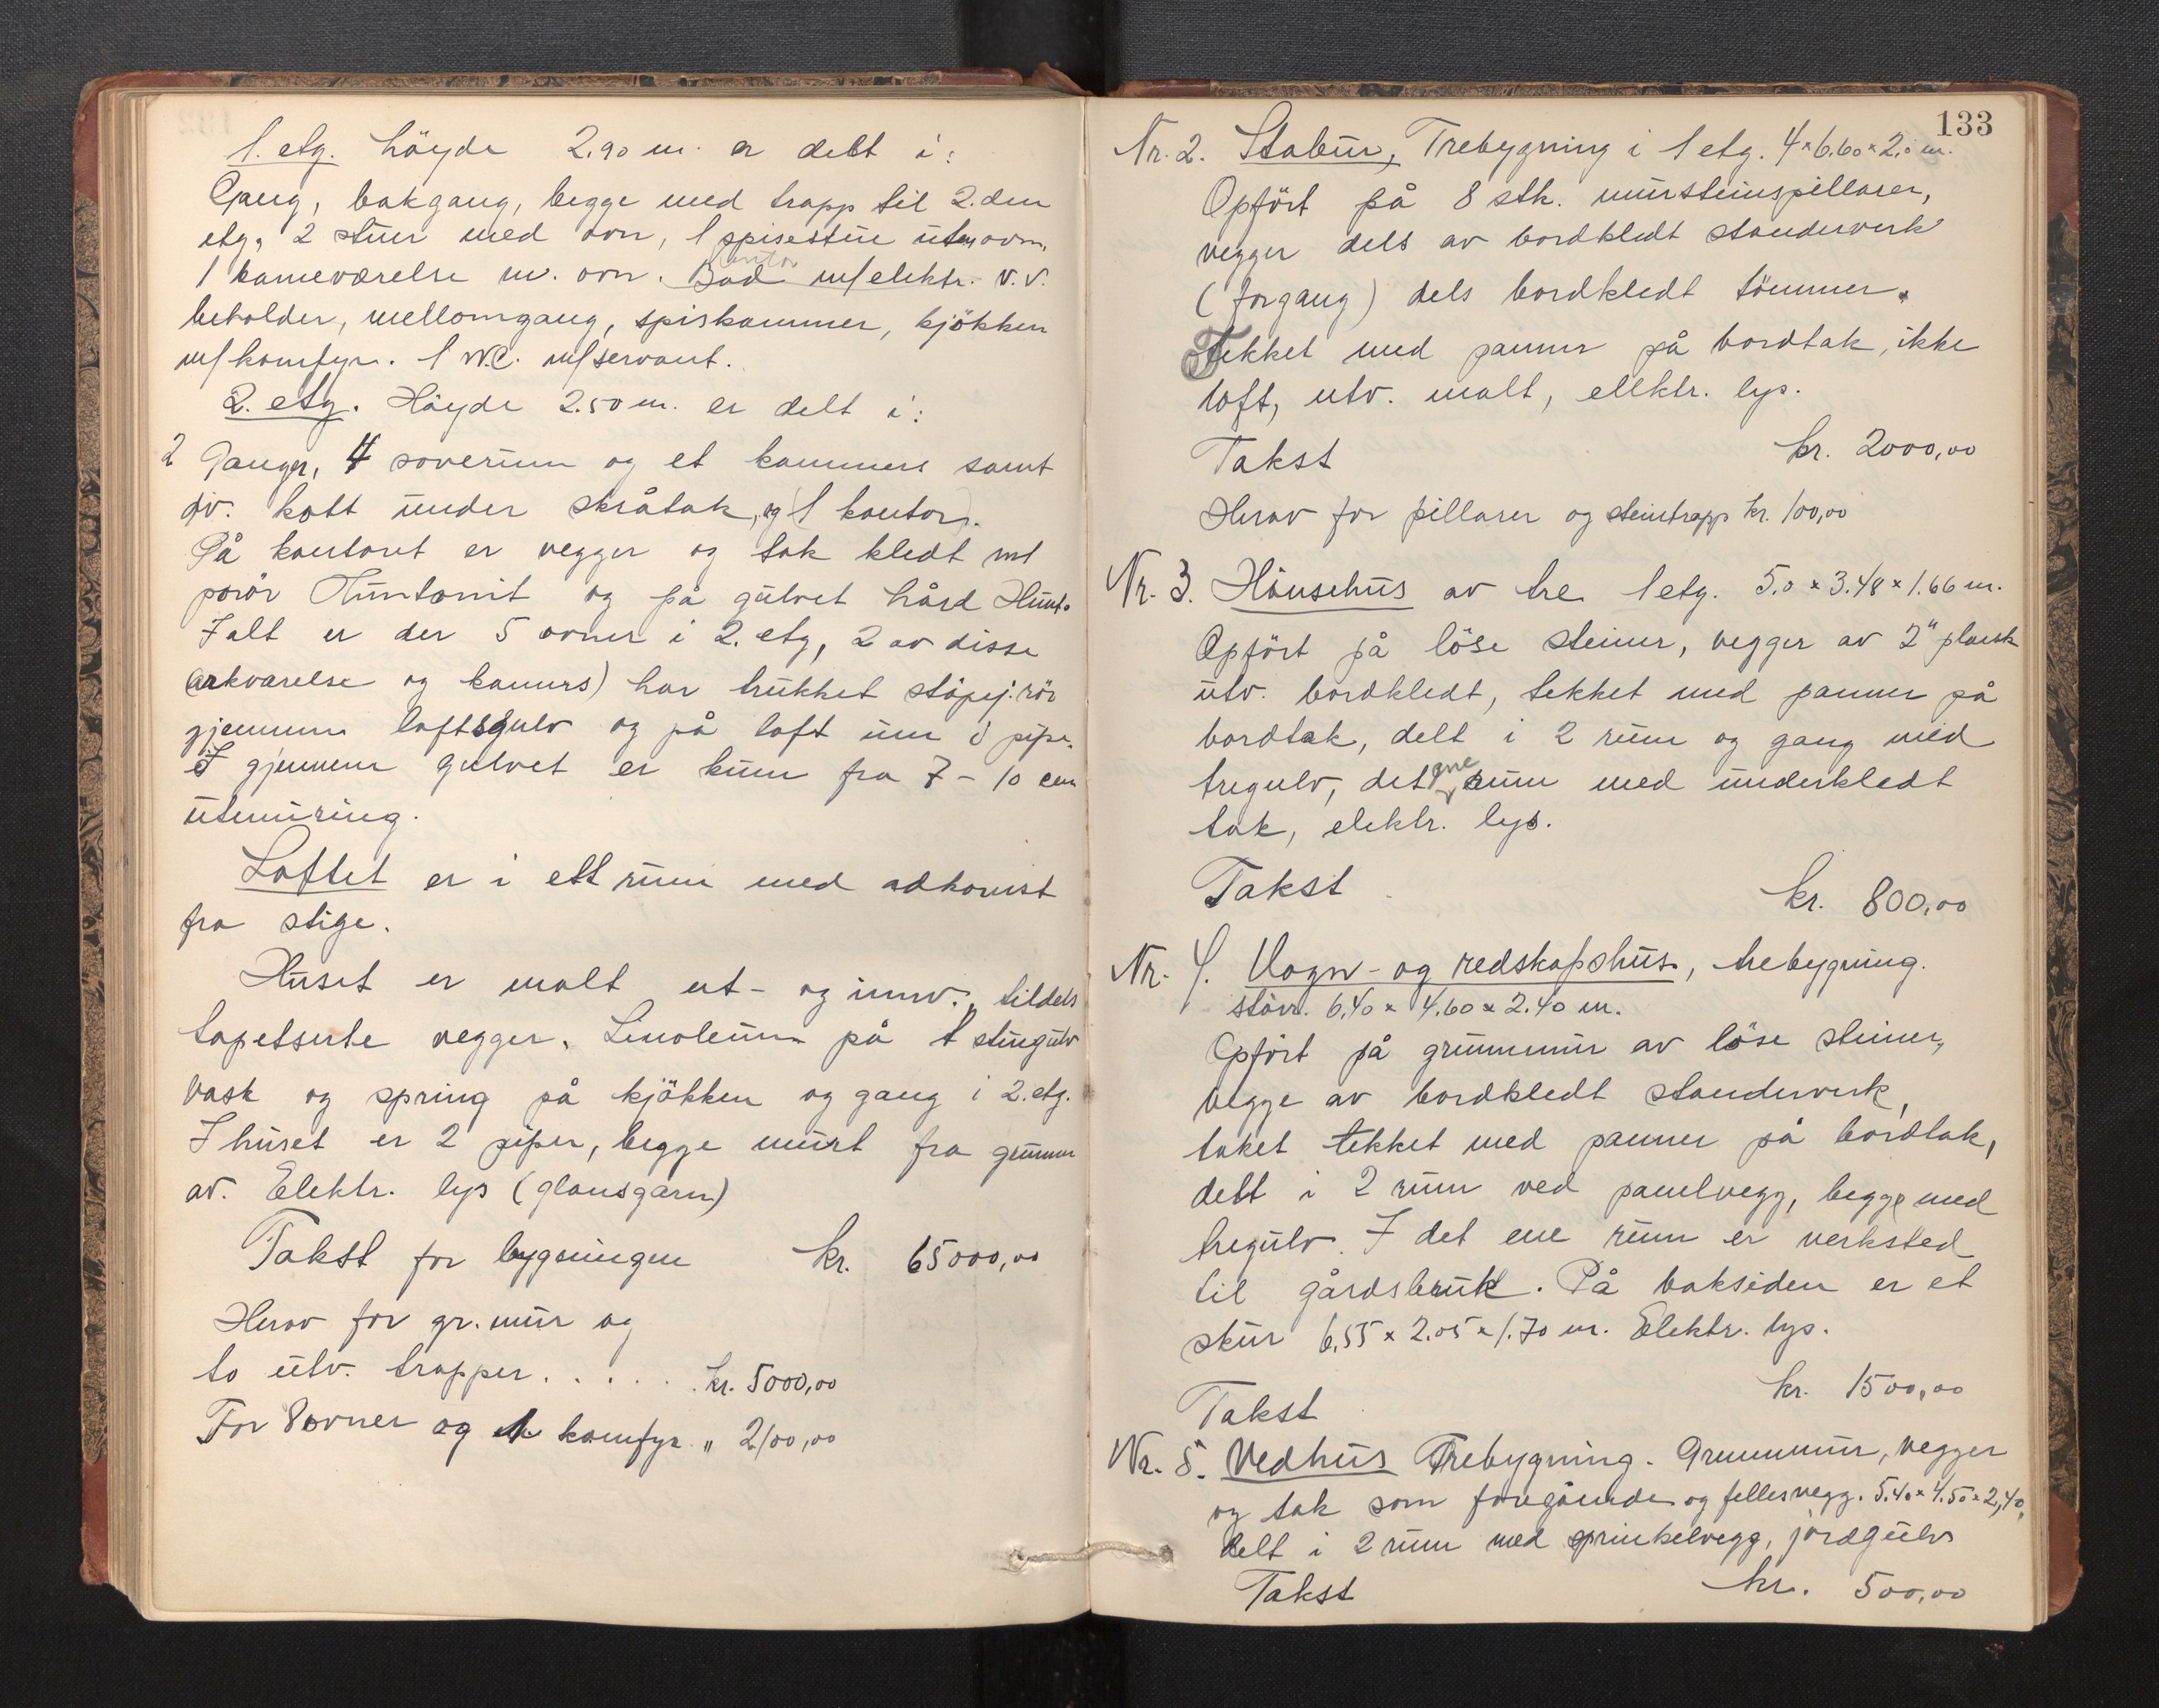 1. etg. höyde 2.90 m. er delt i:
Gang, bakgang, begge med trapp til 2. den
etg, 2 stuer med ovn, 1 spisestue uten ovn,
kontor
1 kameværelse m. ovn. Bad m/elektr. v.v.
beholder, mellomgang, spiskammer, kjökken
m/komfyr. 1 W.C. m/servant.
2. etg. Höyde 2.50 m. er delt i:
2 Ganger, 4 soverum og et kammers samt
div. kott under skråtak, og 1 kontor.
På kontoret er vegger og tak kledt mt
porör Huntonit og på gulvet hård Hunt.
I alt er der 5 ovner i 2. etg, 2 av disse
arkværelse og kamrs) har trukket stöpej. rör
gjennem loftsgulv og på loft inn i pipe.
I gjennem gulvet er kun fra 7 - 10 cm
utmuring.
Loftet er i ett rum med adkomst
fra stige.
Huset er malt ut- og innv., tildels
tapetserte vegger. Linoleum på 1 stuegulv
vask og spring på kjökken og gang i 2. etg.
I huset er 2 piper, begge murt fra grunnen
av. Elektr. lys (glansgarn)
Takst for bygningen kr. 65000,00
Herav for gr.mur og
to utv. trapper . . . . . kr. 5000,00
For 8 ovner og 1 komfyr " 2100,00
133
Nr. 2. Stabur, Trebygning i 1 etg. 4 × 6.60 × 2.0 m.
Opfört på 8 stk. mursteinspillarer,
vegger dels av bordkledt standerverk
(forgang) dels bordkledt tömmer.
Tekket med panner på bordtak, ikke
loft, utv. malt, ellktr. lys.
Takst kr. 2000,00
Herav for pillarer og steintrapp kr. 100,00
Nr. 3. Hönsehus av tre 1 etg. 5.0 × 3.48 × 1.66 m.
Opfört på löse steiner, vegger av 2" plank
utv. bordkledt, tekket med panner på
bordtak, delt i 2 rum og gang med
tregulv, det ene rum med underkledt
tak, elektr. lys.
Takst kr. 800,00
Nr. 4. Vogn- og redskapshus, trebygning.
störr. 6.40 × 4.60 × 2.40 m.
Opfört på grunnmur av löse steiner,
vegge av bordkledt standerverk,
taket tekket med panner på bordtak,
delt i 2 rum ved panelvegg, begge med
tregulv. I det ene rum er verksted
til gårdsbruk. På baksiden er et
skur 6,55 × 2.05 × 1.70 m. Elektr. lys.
Takst kr. 1500,00
Nr. 5. Vedhus Trebygning. Grunnmur, vegger
og tak som foregående og fellesvegg. 5.40 × 4.50 × 2,40,
delt i 2 rum med sprinkelvegg, jordgulv
Takst kr. 500,00